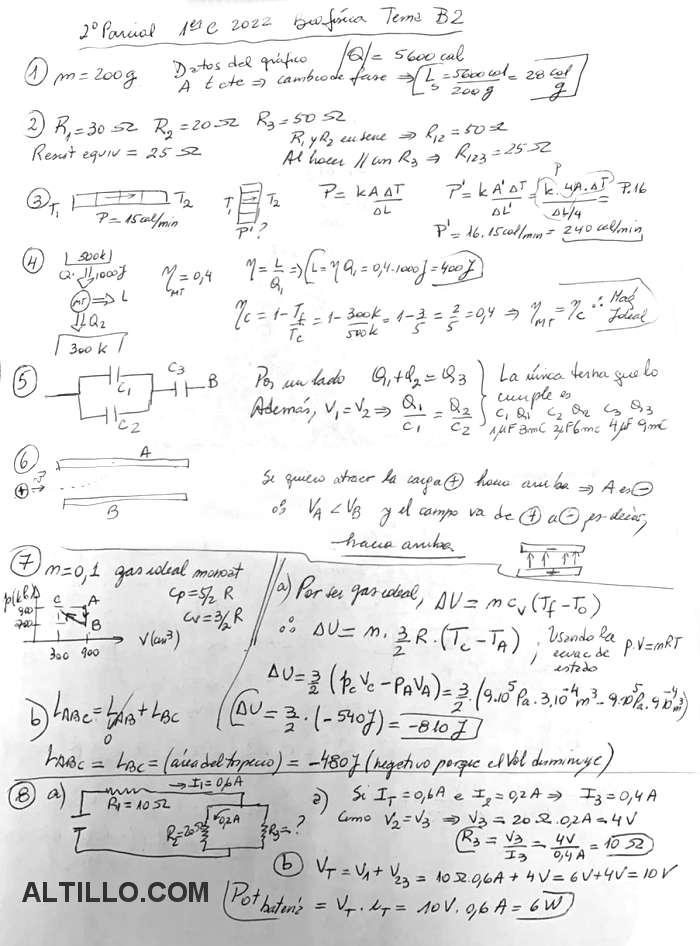 2º Parcial 1er C 2022 Biofísica Tema B2
① m = 200g Datos del gráfico |Q| = 5600 cal
A t cte ⇒ cambio de fase ⇒ L_s = 5600 cal / 200 g = 28 cal/g
2) R₁ = 30 Ω R₂ = 20 Ω R₃ = 50 Ω R₁ y R₂ en serie ⇒ R₁₂ = 50 Ω
Resist equiv = 25 Ω Al hacer // con R₃ ⇒ R₁₂₃ = 25 Ω
③ T₁ T₂ T₁ T₂ P = k A ΔT / ΔL P' = k A' ΔT / ΔL' = k. 4A. ΔT / ΔL/4 = P.16
P
P = 15 cal/min P'? P' = 16.15 cal/min = 240 cal/min
④ 500k
Q₁ 1000J η_MT = 0,4 η = L/Q₁ ⇒ L = η Q₁ = 0,4.1000J = 400J
MT ⇒ L
Q₂ η_C = 1 - T_f/T_c = 1 - 300k/500k = 1 - 3/5 = 2/5 = 0,4 ⇒ η_MT = η_C ∴ Maq Ideal
300 k
⑤ C₁ C₂ C₃ B
Por un lado Q₁ + Q₂ = Q₃
Además, V₁ = V₂ ⇒ Q₁/C₁ = Q₂/C₂
La única terna que lo
cumple es
C₁ Q₁ C₂ Q₂ C₃ Q₃
1μF 3mC 2μF 6mC 4μF 9mC
⑥ A
+ v
B
Si quiero atraer la carga ⊕ hacia arriba ⇒ A es ⊖
∴ V_A < V_B y el campo va de ⊕ a ⊖ es decir,
hacia arriba.
⑦ m = 0,1 gas ideal monoat
Cp = 5/2 R
Cv = 3/2 R
p(k A
900 C A
700 B
300 900 V(cm³)
a) Por ser gas ideal, ΔU = m c_v (T_f - T_0)
∴ ΔU = n. 3/2 R. (T_C - T_A) ; Usando la
ecuac de p.V = nRT
estado
ΔU = 3/2 (p_C V_C - P_A V_A) = 3/2. (9.10⁵ Pa. 3.10⁻⁴ m³ - 9.10⁵ Pa. 9.10⁻⁴ m³)
ΔU = 3/2. (-540J) = -810 J
b) L_ABC = L_AB + L_BC
0
L_ABC = L_BC = (área del trapecio) = -480J (negativo porque el Vol disminuye)
⑧ a) → I₁ = 0,6A
R₁ = 10 Ω
R₂ = 20 Ω 0,2A R₃ = ?
a) Si I_T = 0,6A e I₂ = 0,2A ⇒ I₃ = 0,4 A
como V₂ = V₃ ⇒ V₃ = 20 Ω. 0,2A = 4V
R₃ = V₃/I₃ = 4V/0,4A = 10 Ω
b) V_T = V₁ + V₂₃ = 10 Ω. 0,6A + 4V = 6V + 4V = 10V
Pot batería = V_T. i_T = 10V. 0,6 A = 6 W
ALTILLO.COM